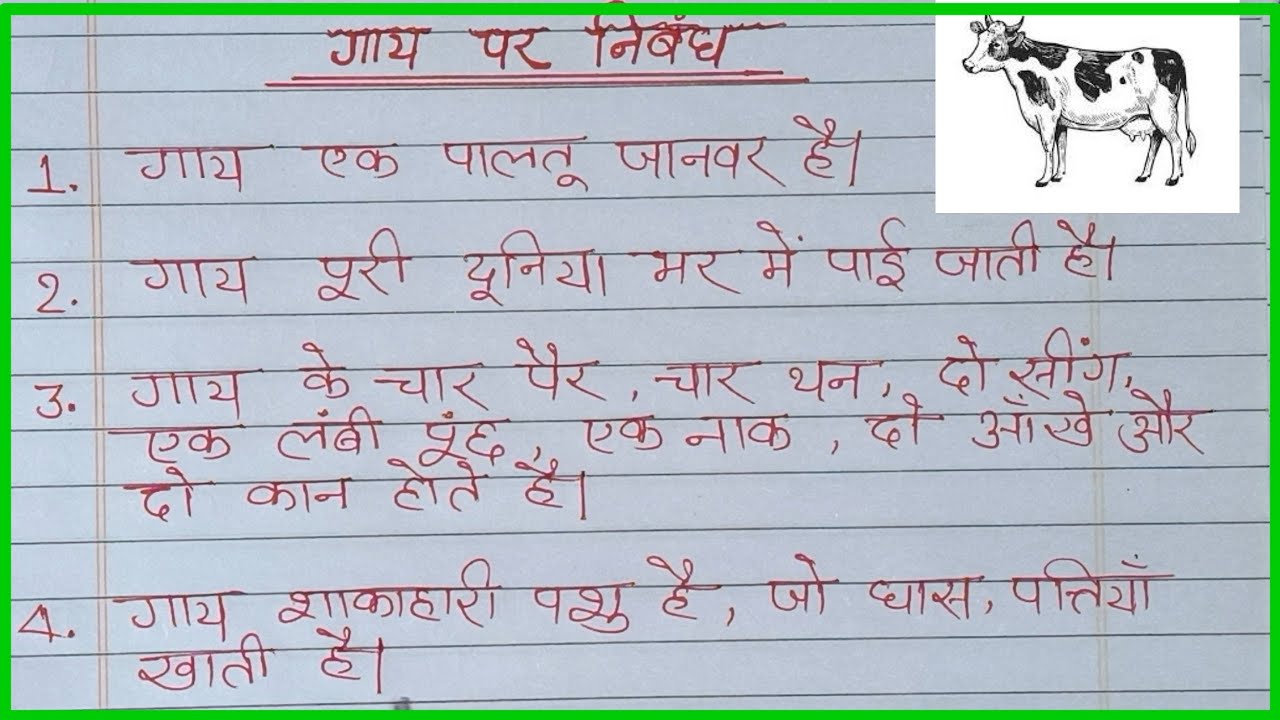 गाय पर निबंध
1. गाय एक पालतू जानवर है।
2. गाय पूरी दूनिया भर में पाई जाती है।
3. गाय के चार पैर, चार थन, दो सींग,
एक लंबी पूंछ, एक नाक, दो आँखे और
दो कान होते है।
4. गाय शाकाहारी पशु है, जो घास, पत्तियाँ
खाती है।